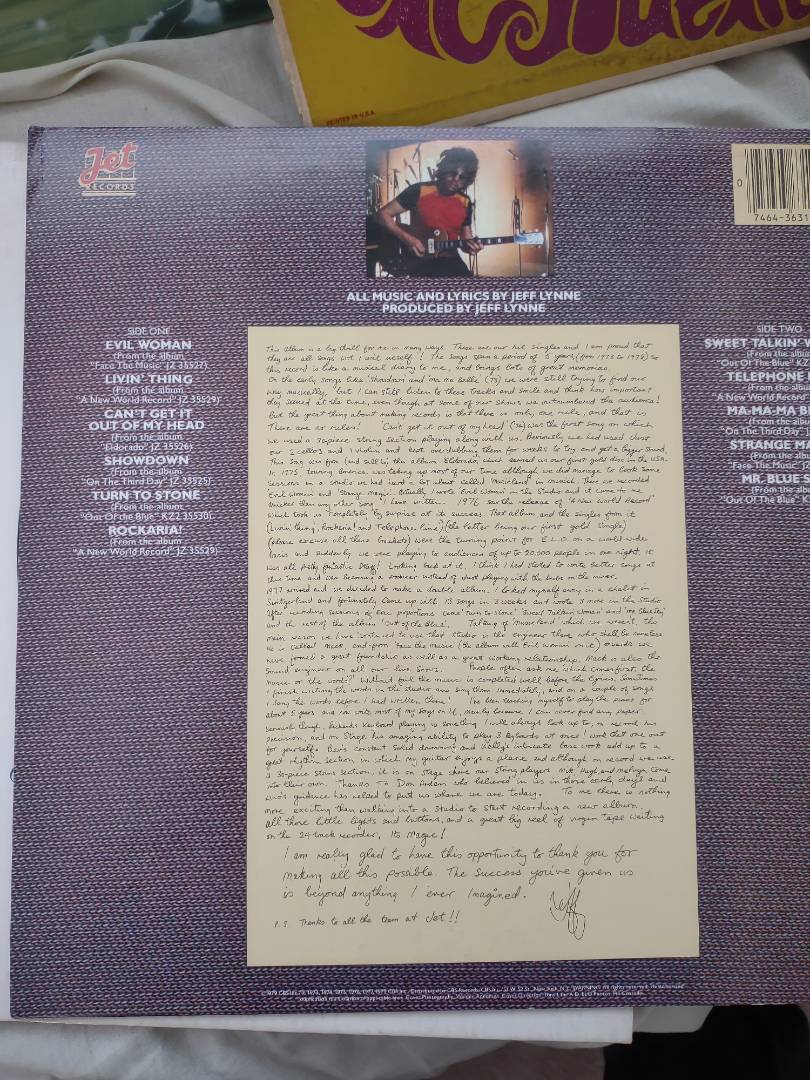 PRINTED IN U.S.A.
Jet
RECORDS
0
7464-3631
ALL MUSIC AND LYRICS BY JEFF LYNNE
PRODUCED BY JEFF LYNNE
SIDE ONE
EVIL WOMAN
(From the album
"Face The Music" JZ 35527)
LIVIN' THING
(From the album
"A New World Record" JZ 35529)
CAN'T GET IT
OUT OF MY HEAD
(From the album
"Eldorado" JZ 35526)
SHOWDOWN
(From the album
"On The Third Day" JZ 35525)
TURN TO STONE
(From the album
"Out Of The Blue" KZ2 35530)
ROCKARIA!
(From the album
"A New World Record" JZ 35529)
This album is a big thrill for me in many ways. These are our hit singles and I am proud that
they are all songs wot I writ meself! The songs span a period of 5 years, (from 1973 to 1978) so
this record is like a musical diary to me, and brings lots of great memories.
On the early songs like 'Showdown' and 'Ma ma Belle' (73) we were still trying to find our
way musically, but I can still listen to these tracks and smile and think how important
they seemed at the time, even though at some of our shows we outnumbered the audience!
But the great thing about making records is that there is only one rule, and that is
There are no rules! 'Can't get it out of my head' (74) was the first song on which
we used a 30 piece string section playing along with us. Previously we had used just
our 2 cellos and 1 violin and kept overdubbing them for weeks to try and get a bigger sound.
This song was from the album Eldorado, which earned us our first gold disc in the U.S.A.
In 1975 touring America was taking up most of our time although we did manage to book some
sessions in a studio we had heard a lot about called Musicland in Munich. There we recorded
'Evil Woman' and 'Strange Magic'. Actually I wrote Evil Woman in the Studio and it came to me
quicker than any other song I have written. 1976 saw the release of 'A New World Record'
which took us completely by surprise at its success. That album and the singles from it
(Livin' thing, Rockaria! and Telephone Line) (the latter being our first gold single)
(please excuse all these brackets) were the turning point for E.L.O. on a world-wide
basis and suddenly we were playing to audiences of up to 20,000 people in one night. It
was all pretty fantastic Really! Looking back at it, I think I had started to write better songs at
this time and was becoming a producer instead of just playing with the knobs on the mixer.
1977 arrived and we decided to make a double album. I locked myself away in a chalet in
Switzerland and fortunately came up with 13 songs in 3 weeks and wrote 3 more in the studio.
After recording sessions of epic proportions came 'Turn to Stone' 'Sweet Talkin Woman' and 'Mr Blue Sky'
and the rest of the album 'Out of the Blue'. Talking of Musicland which we weren't, the
main reason we have continued to use that studio is the engineer there who shall be nameless
He is called Mack, and from Face the Music (the album with Evil woman on it) onwards we
have formed a great friendship as well as a great working relationship. Mack is also the
sound engineer on all our live shows. People often ask me which comes first, the
music or the words? Without fail the music is completed well before the lyrics. Sometimes
I finish writing the words in the studio and sing them immediately, and on a couple of songs
I sang the words before I had written them! I've been teaching myself to play the piano for
about 5 years and now write most of my songs on it, mainly because I can never find any paper.
Seriously though, Richard's Keyboard playing is something I will always look up to, on record his
precision, and on Stage his amazing ability to play 3 keyboards at once! work that one out
for yourself. Bev's constant solid drumming and Kelly's intricate bass work add up to a
great rhythm section in which my guitar enjoys a place and although on record we use
a 30-piece string section, it is on stage where our string players Mik, Hugh and Melvyn come
into their own. Thanks to Don Arden who believed in us in those early days and
who's guidance has helped to put us where we are today. To me there is nothing
more exciting than walking into a Studio to start recording a new album.
All those little lights and buttons, and a great big reel of virgin tape waiting
on the 24 track recorder, Its Magic!
I am really glad to have this opportunity to thank you for
making all this possible. The success you've given us
is beyond anything I ever Imagined.
Jeff
P.S Thanks to all the team at Jet!!
SIDE TWO
SWEET TALKIN'
(From the
"Out Of The Blue" KZ
TELEPHONE
(From the
"A New World Record"
MA-MA-MA
(From the
"On The Third Day"
STRANGE
(From the
"Face The Music"
MR. BLUE
(From the
"Out Of The Blue"